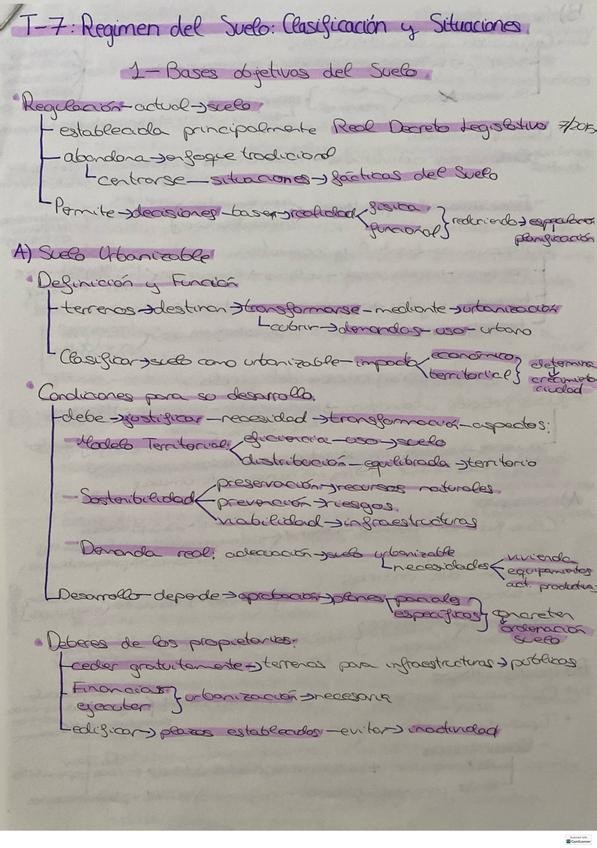 T-7: Regimen del Suelo: Clasificación y Situaciones
1- Bases objetivos del Suelo
• Regulación - actual → suelo
establecida principalmente Real Decreto Legislativo 7/2015
abandona → enfoque tradicional
centrarse — situaciones → fácticas del Suelo
Permite → decisiones - basen → realidad física funcional } reduciendo → especulación planificación
A) Suelo Urbanizable
• Definición y Función
terrenos → destinan → transformarse - mediante → urbanización
cubrir → demandas - uso - urbano
Clasificar → suelo como urbanizable - impacto económico territorial } determina crecimiento ciudad
• Condiciones para su desarrollo.
debe → justificar - necesidad → transformación - aspectos:
- Modelo Territorial eficiencia - uso → suelo
distribución - equilibrada → territorio
- Sostenibilidad preservación → recursos naturales
prevención → riesgos
viabilidad → infraestructuras
- Demanda real: adecuación → suelo urbanizable
necesidades vivienda equipamientos act. productivas
Desarrollo depende → aprobación → planes parciales específicos } concreten ordenación suelo
• Deberes de los propietarios:
ceder gratuitamente → terrenos para infraestructuras → públicas
Financiar ejecutar } urbanización → necesaria
edificar → plazos establecidos - evitar → inactividad
Scanned with
CamScanner